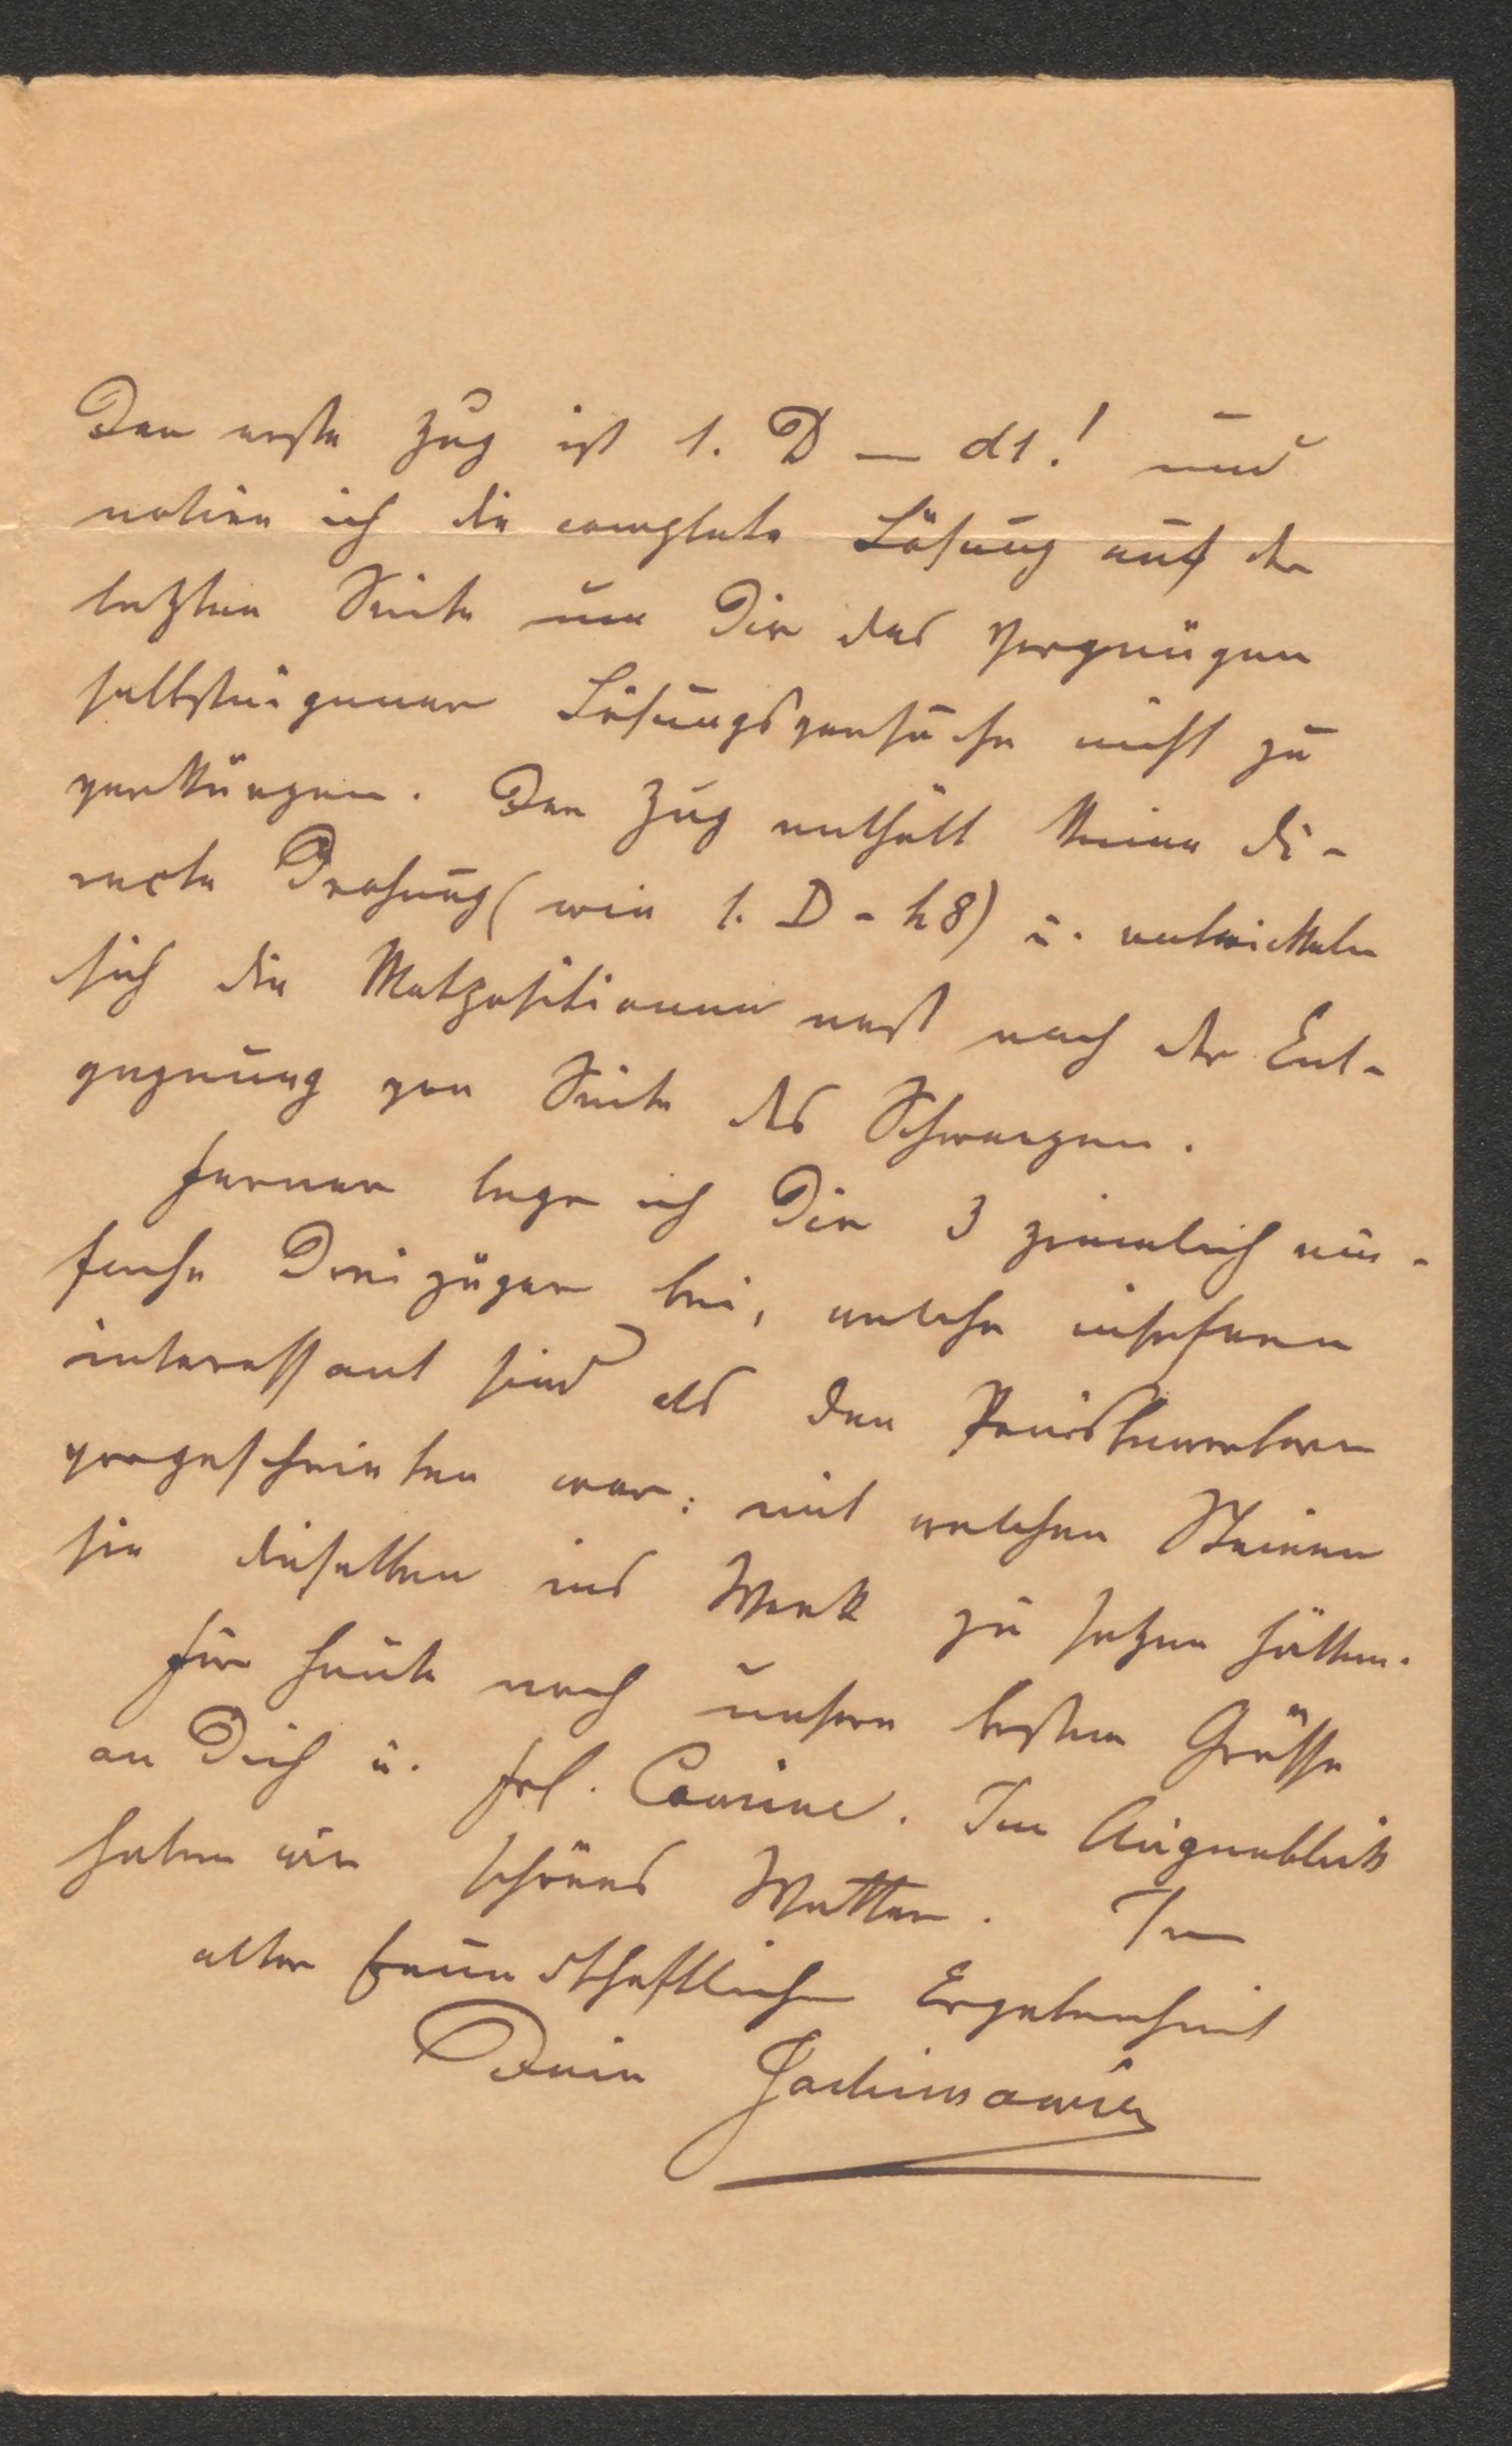 Der erste Zug ist 1. D — d1! und
notire ich die complete Lösung auf der
letzten Seite um Dir das Vergnügen
selbsteigener Lösungsversuche nicht zu
verkürzen. Der Zug enthält keine di-
recte Drohung (wie 1. D - h8) u. entwickeln
sich die Matpositionen erst nach der Ent-
gegnung von Seite des Schwarzen.
Ferner lege ich Dir 3 ziemlich ein-
fache Dreizüger bei, welche insofern
interessant sind als den Preisbewerbern
vorgeschrieben war: mit welchen Steinen
sie dieselben ins Werk zu setzen hätten.
Für heute noch unsere besten Grüsse
an Dich u. Frl. Cousine. Im Augenblick
haben wir schönes Wetter. In
alter freundschaftlicher Ergebenheit
Dein